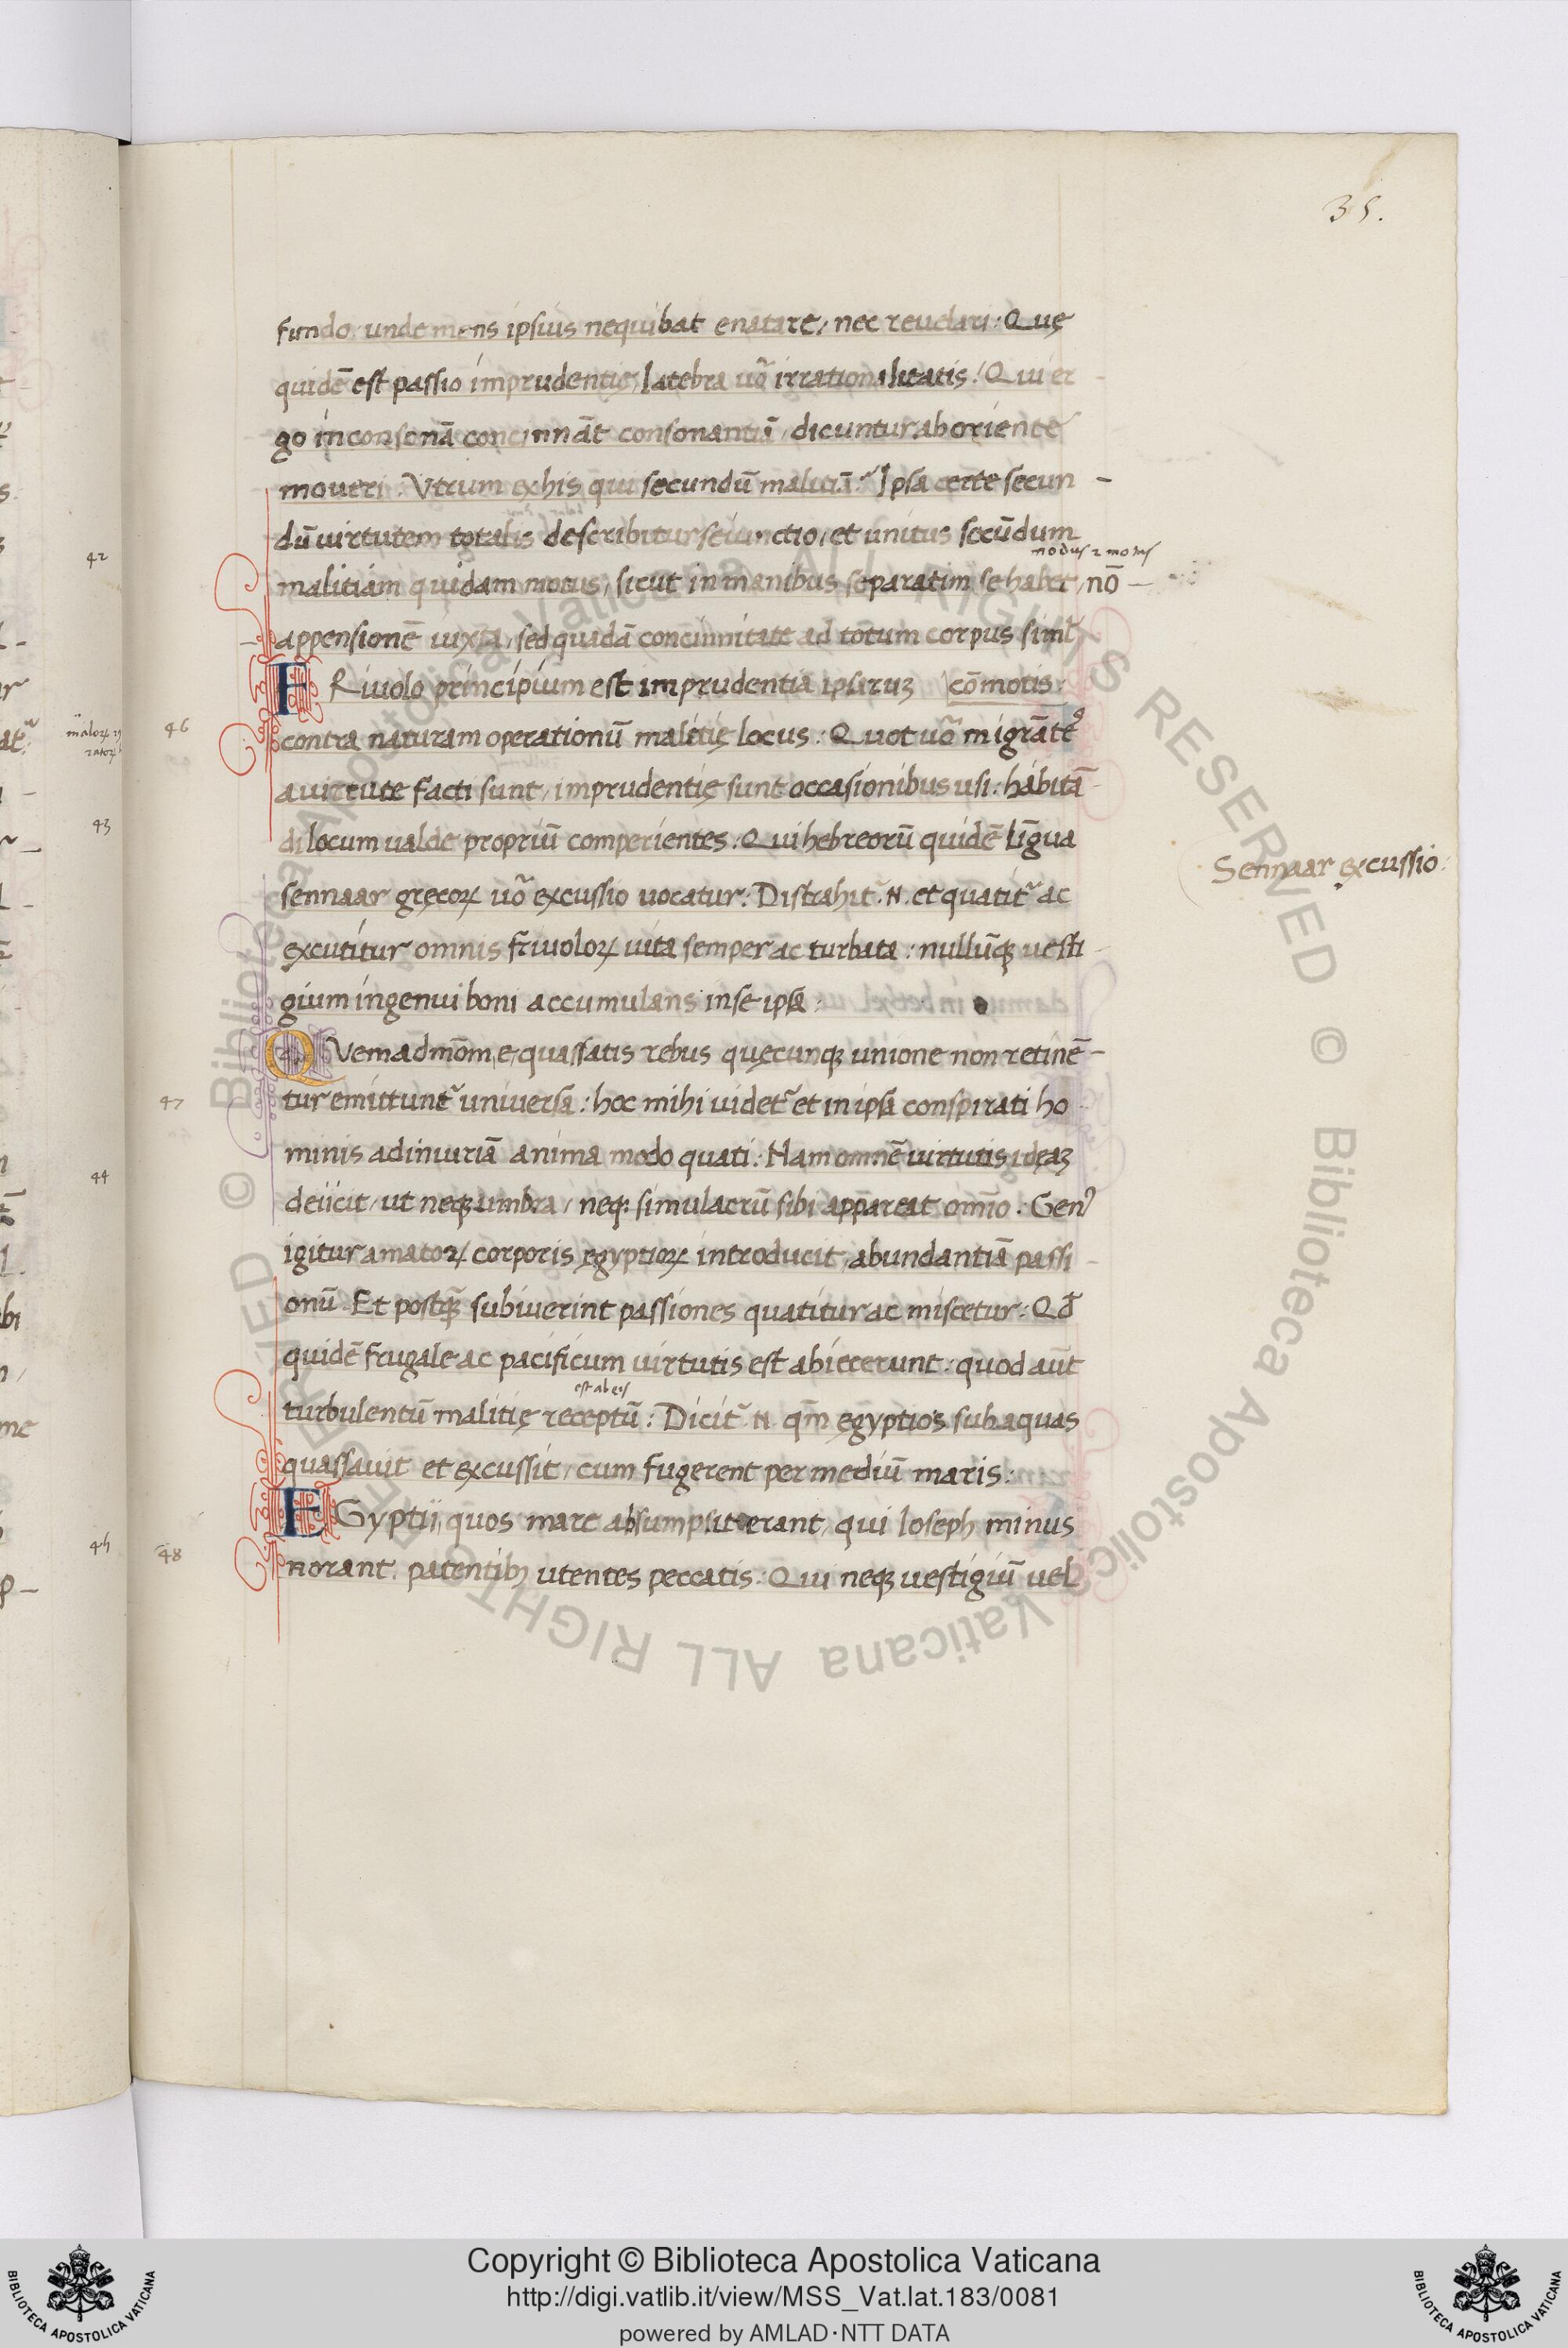 35.
fundo, unde mens ipsius nequibat enatare, nec reuelari: Quę
quidē est passio imprudentię, latebra uō irrationalitatis! Qui er
go inconsonā concinnāt consonantiā, dicuntur ab oriente
moueri. Vtrum ex his qui secundū malitiā? Ipsa certe secun –
dū uirtutem totalis describitur seiunctio, et unitus secūdum
nodus
malitiam quidam motus, sicut in manibus separatim se habet, nō –
appensionē iuxta, sed quadā concinnitate ad totum corpus simł
FRiuolo principium est imprudentia ipsaruꝫ cōmotis:
contra naturam operationū malitię locus: Quot uō migrātes
a uirtute facti sunt, imprudentię sunt occasionibus usi: habitā
di locum ualde propriū comperientes: Qui hebreorū quidē lingua
sennaar gręcoꝝ uō excussio uocatur: Distrahit̃ .N. et quatit̃ ac
excutitur omnis friuoloꝝ uita semper ac turbata: nullūqꝫ uesti
gium ingenui boni accumulans in se ipsa:
QVemadmōm, e, quassatis rebus quęcunqꝫ unione non retinē –
tur emittunt̃ universa: hoc mihi uidet̃ et in ipsa conspirati ho
minis ad iniuriā anima modo quati: Nam omnē uirtutis ideaꝫ
deiicit, ut neqꝫ umbra, neqꝫ simulacrū sibi appareat om̄io. Genꝰ
igitur amatoꝝ corporis ęgyptioꝝ introducit, abundantiā passi
onū. Et postq̄ subiuerint passiones quatitur ac miscetur: Qđ
quidē frugale ac pacificum uirtutis est abiecerunt: quod aūt
est ab eis
turbulentū malitię receptū: Dicit̃ .N. qm̄ ęgyptios sub aquas
quassauit et excussit, cum fugerent per mediū maris:
EGyptii, quos mare absumpsit erant, qui Ioseph minus
norant, patentibꝫ utentes peccatis: Qui neqꝫ uestigiū uel
Sennaar excussio:
42
46
43
47
44
48
Copyright © Biblioteca Apostolica Vaticana
http://digi.vatlib.it/view/MSS_Vat.lat.183/0081
powered by AMLAD·NTT DATA
BIBLIOTECA APOSTOLICA VATICANA
BIBLIOTECA APOSTOLICA VATICANA
© Biblioteca Apostolica Vaticana ALL RIGHTS RESERVED © Biblioteca Apostolica Vaticana ALL RIGHTS RESERVED